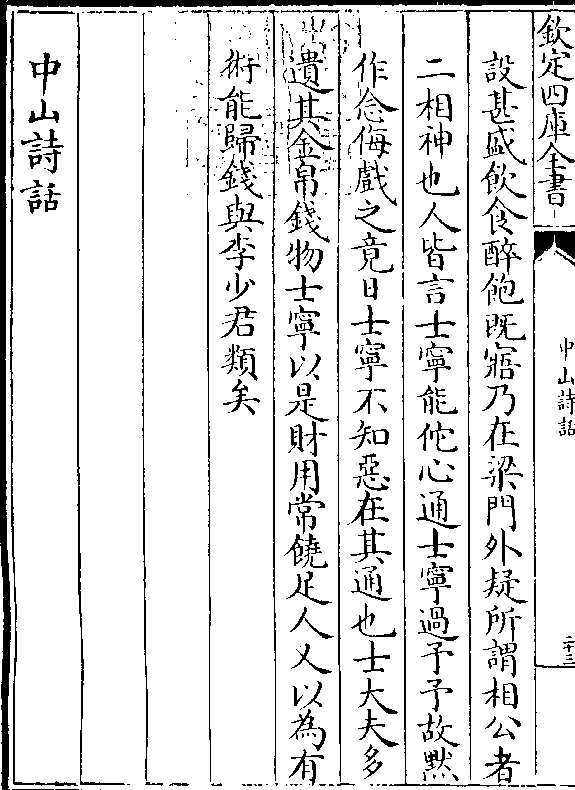 欽定四庫全書
中山詩話
二十三
設甚盛飲食醉飽既寤乃在梁門外疑所謂相公者
二相神也人皆言士寧能佗心通士寧過予予故黙
作念侮戲之竟日士寧不知惡在其通也士大夫多
遺其金帛錢物士寧以是財用常饒足人又以為有
術能歸錢與李少君類矣
中山詩話